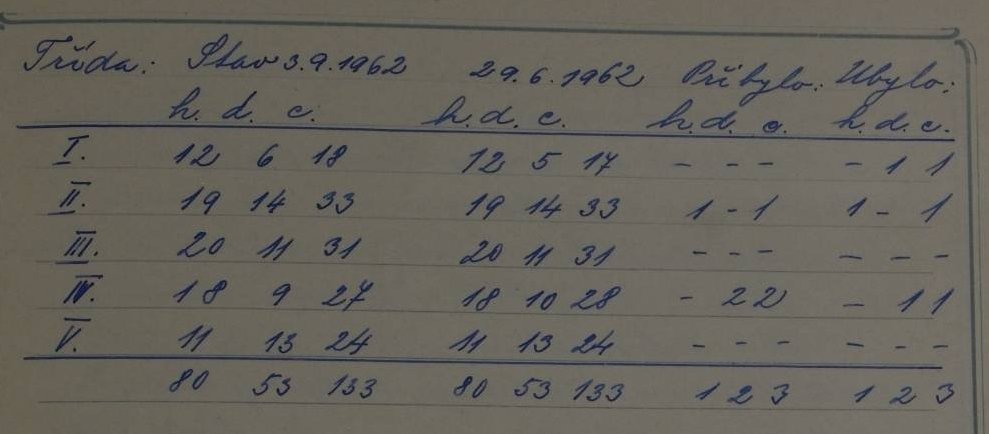 Třída: Stav 3.9.1962 29.6.1962 Přibylo: Ubylo:
h. d. c. h. d. c. h. d. c. h. d. c.
I. 12 6 18 12 5 17 - - - - 1 1
II. 19 14 33 19 14 33 1 - 1 1 - 1
III. 20 11 31 20 11 31 - - - - - -
IV. 18 9 27 18 10 28 - 2 2 - 1 1
V. 11 13 24 11 13 24 - - - - - -
80 53 133 80 53 133 1 2 3 1 2 3